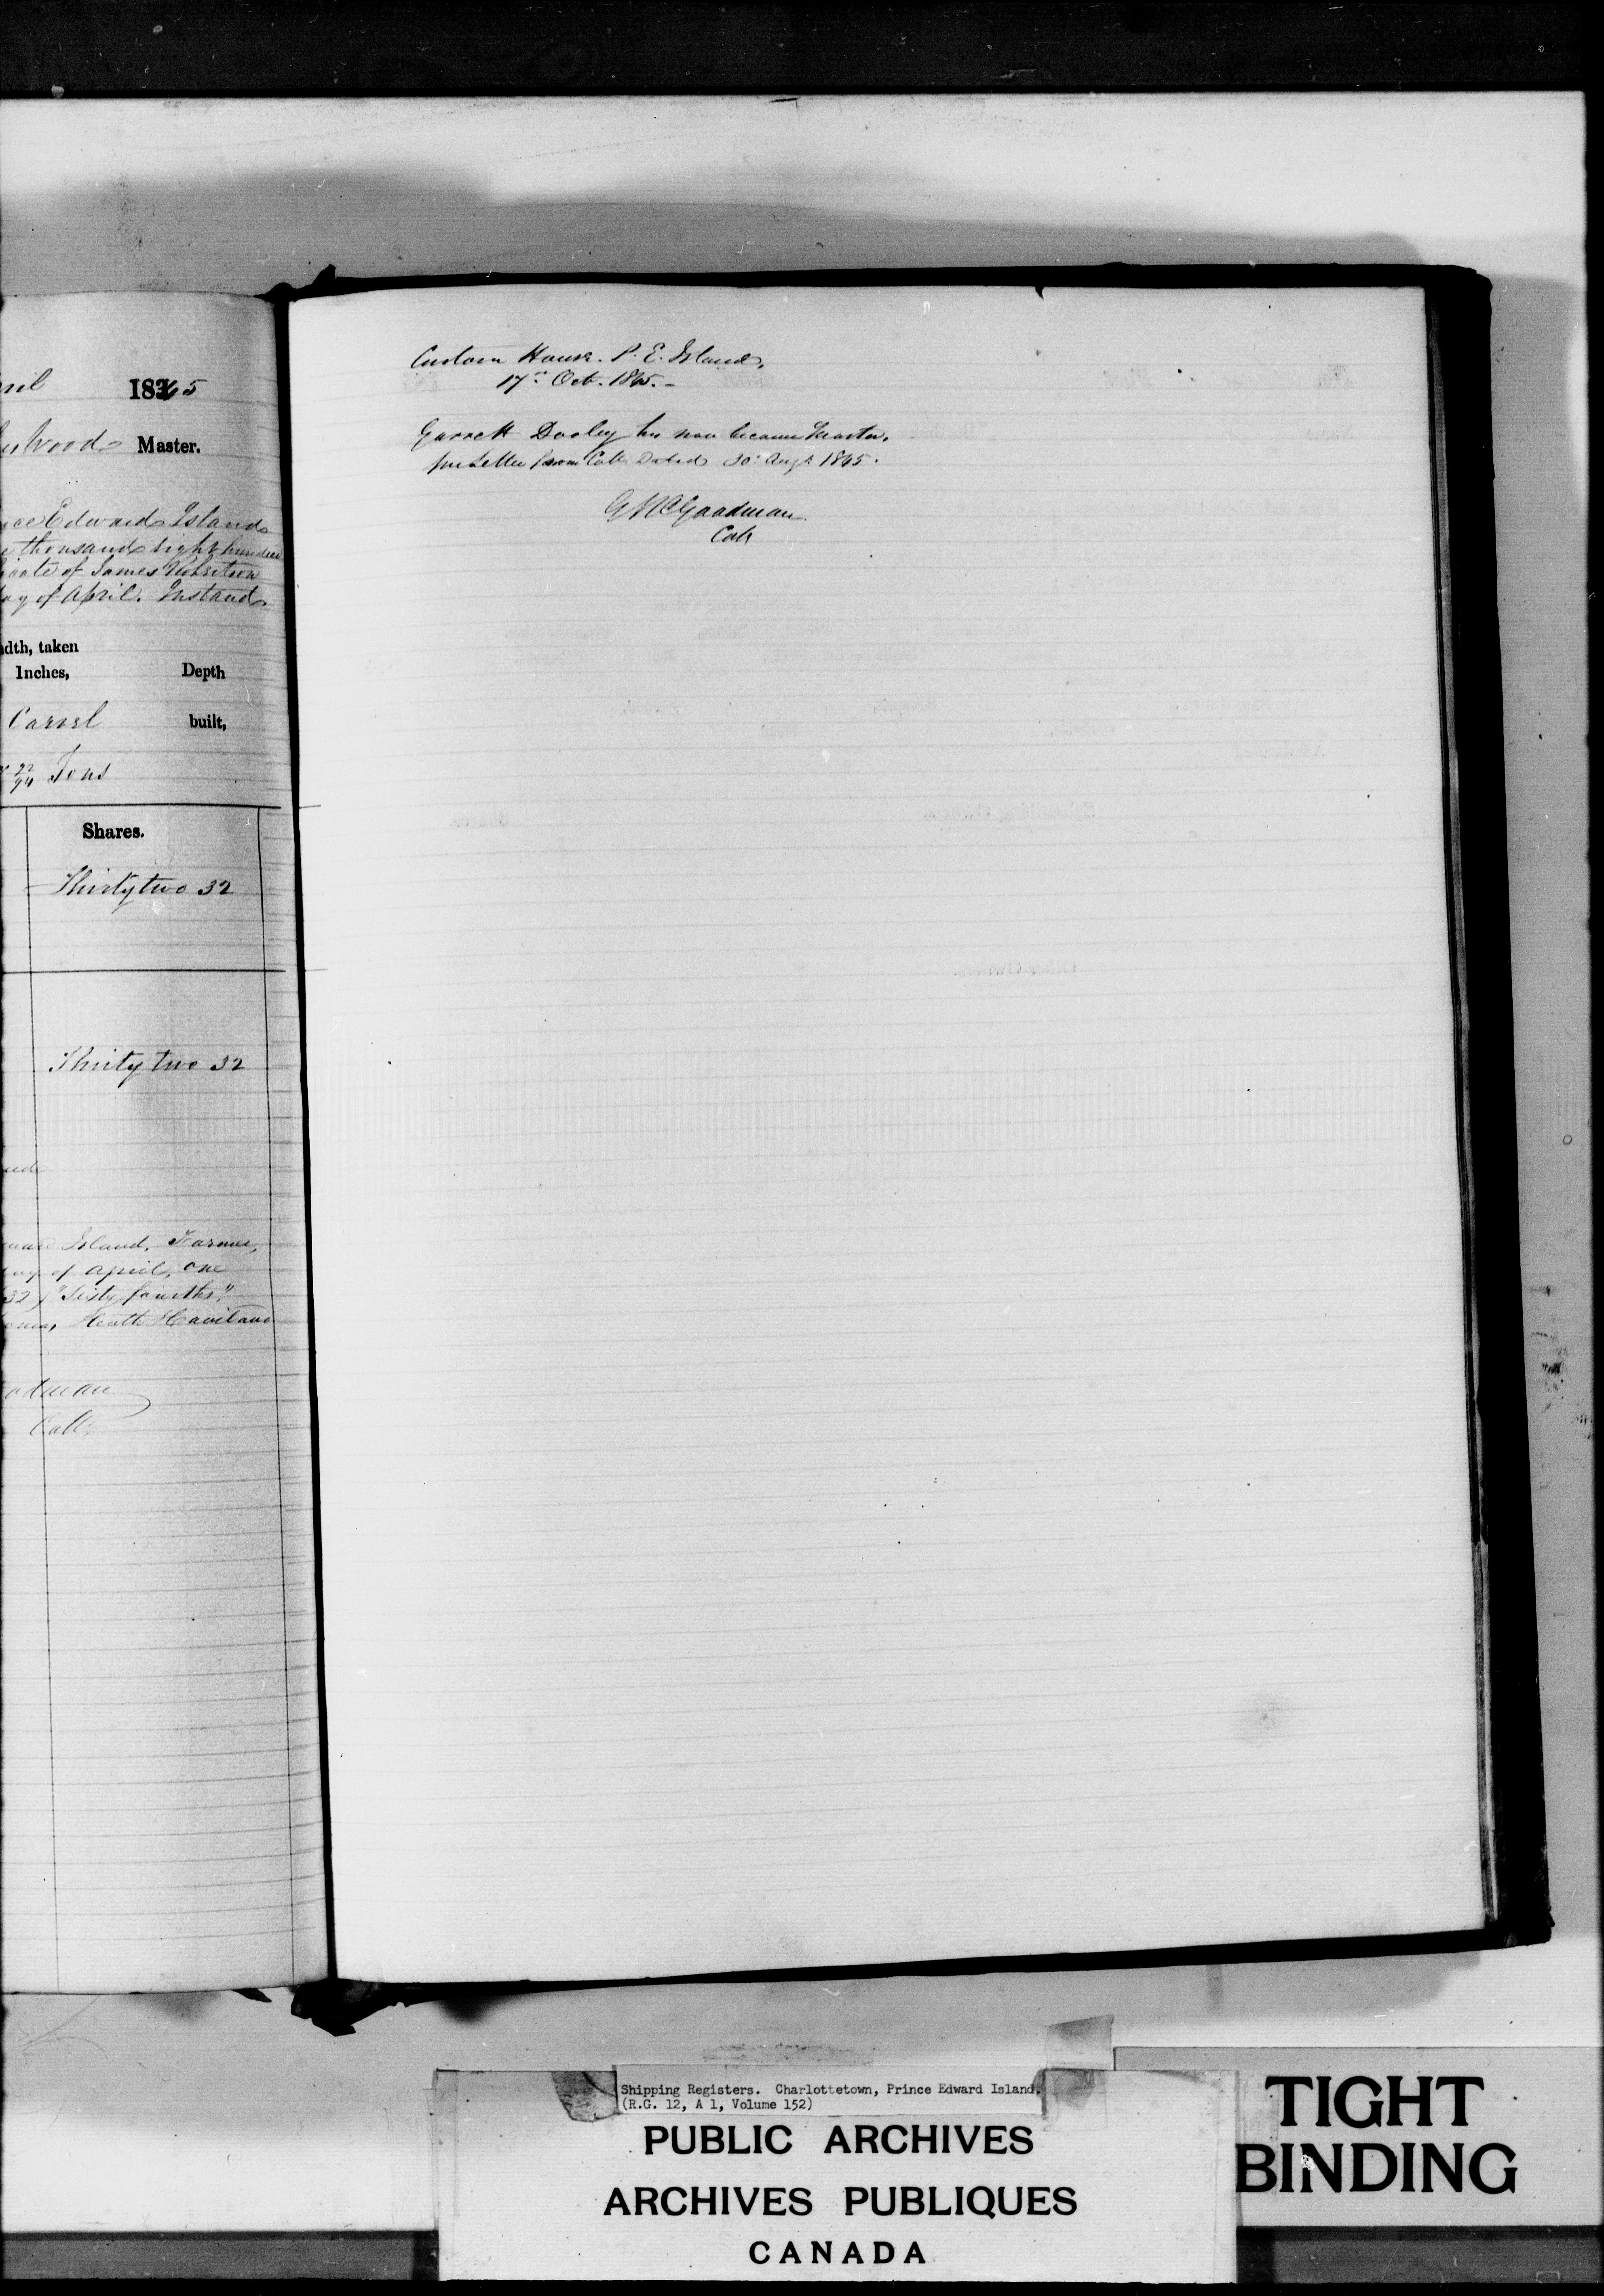 ril 1845
Wood Master.
ce Edward Island
thousand eight hundred
cate of James Robertson
ay of April. Instand
dth, taken
Inches, Depth
Carvel built,
22/94 Tons
Shares.
Thirty two 32
Thirty two 32
Island, Farmer,
of April, one
32) "Sixty fourths"
Heath Haviland
odman
Collr
Custom House. P. E. Island,
17th Oct. 1845.
Garrett Dooley has now become Master,
per Letter from Collr Dated 30th Augt 1845.
G R Goodman
Collr
Shipping Registers. Charlottetown, Prince Edward Island.
(R.G. 12, A 1, Volume 152)
PUBLIC ARCHIVES
ARCHIVES PUBLIQUES
CANADA
TIGHT
BINDING